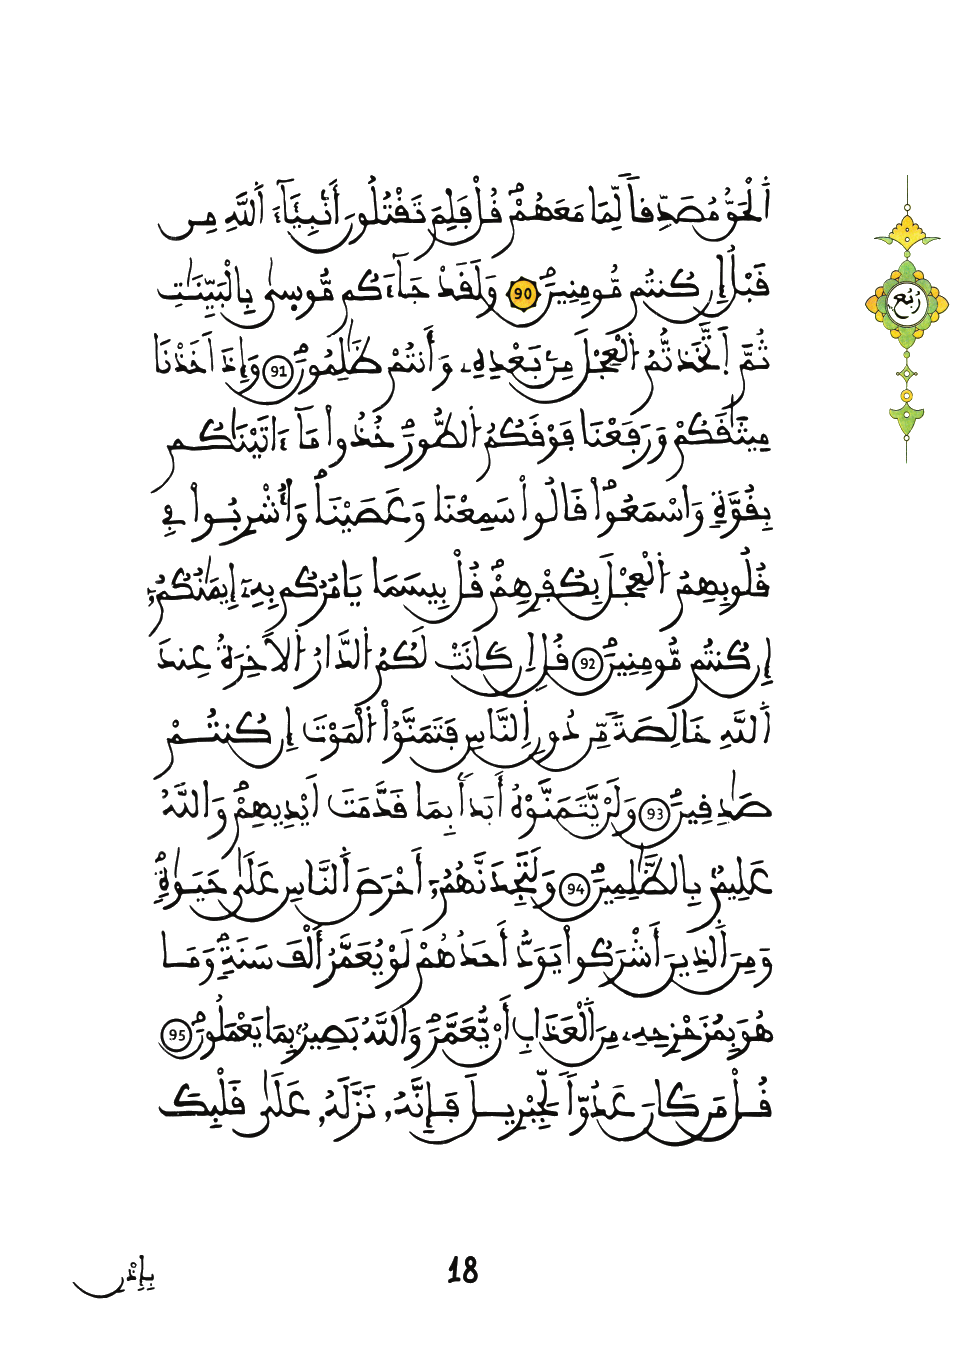 اَ۬لْحَقُّ مُصَدِّقاٗ لِّمَا مَعَهُمْۖ قُلْ فَلِمَ تَقْتُلُونَ أَنۢبِيَآءَ اَ۬للَّهِ مِن
قَبْلُ إِن كُنتُم مُّومِنِينَۖ 90 وَلَقَدْ جَآءَكُم مُّوسٜىٰ بِالْبَيِّنَٰتِ
ثُمَّ اَ۪تَّخَذتُّمُ اُ۬لْعِجْلَ مِنۢ بَعْدِهِۦ وَأَنتُمْ ظَٰلِمُونَۖ 91 وَإِذَ اَخَذْنَا
مِيثَٰقَكُمْ وَرَفَعْنَا فَوْقَكُمُ اُ۬لطُّورَۖ خُذُواْ مَآ ءَاتَيْنَٰكُم
بِقُوَّةٖ وَاسْمَعُواْۖ قَالُواْ سَمِعْنَا وَعَصَيْنَاۖ وَأُشْرِبُواْ فِے
قُلُوبِهِمُ اُ۬لْعِجْلَ بِكُفْرِهِمْۖ قُلْ بِيسَمَا يَامُرُكُم بِهِۦٓ إِيمَٰنُكُمُۥٓ
إِن كُنتُم مُّومِنِينَۖ 92 قُلِ اِن كَانَتْ لَكُمُ اُ۬لدَّارُ اُ۬لَاخِرَةُ عِندَ
اَ۬للَّهِ خَالِصَةٗ مِّن دُونِ اِ۬لنَّاسِ فَتَمَنَّوُاْ اُ۬لْمَوْتَ إِن كُنتُمْ
صَٰدِقِينَۖ 93 وَلَنْ يَّتَمَنَّوْهُ أَبَداَۢ بِمَا قَدَّمَتَ اَيْدِيهِمْۖ وَاللَّهُ
عَلِيمُۢ بِالظَّٰلِمِينَۖ 94 وَلَتَجِدَنَّهُمُۥٓ أَحْرَصَ اَ۬لنَّاسِ عَلَىٰ حَيَوٰةٖۖ
وَمِنَ اَ۬لذِينَ أَشْرَكُواْ يَوَدُّ أَحَدُهُمْ لَوْ يُعَمَّرُ أَلْفَ سَنَةٖۖ وَمَا
هُوَ بِمُزَحْزِحِهِۦ مِنَ اَ۬لْعَذَابِ أَنْ يُّعَمَّرَۖ وَاللَّهُ بَصِيرُۢ بِمَا يَعْمَلُونَۖ 95
قُلْ مَن كَانَ عَدُوّاٗ لِّجِبْرِيلَ فَإِنَّهُۥ نَزَّلَهُۥ عَلَىٰ قَلْبِكَ
رُبُع
18
بِإِذْنِ